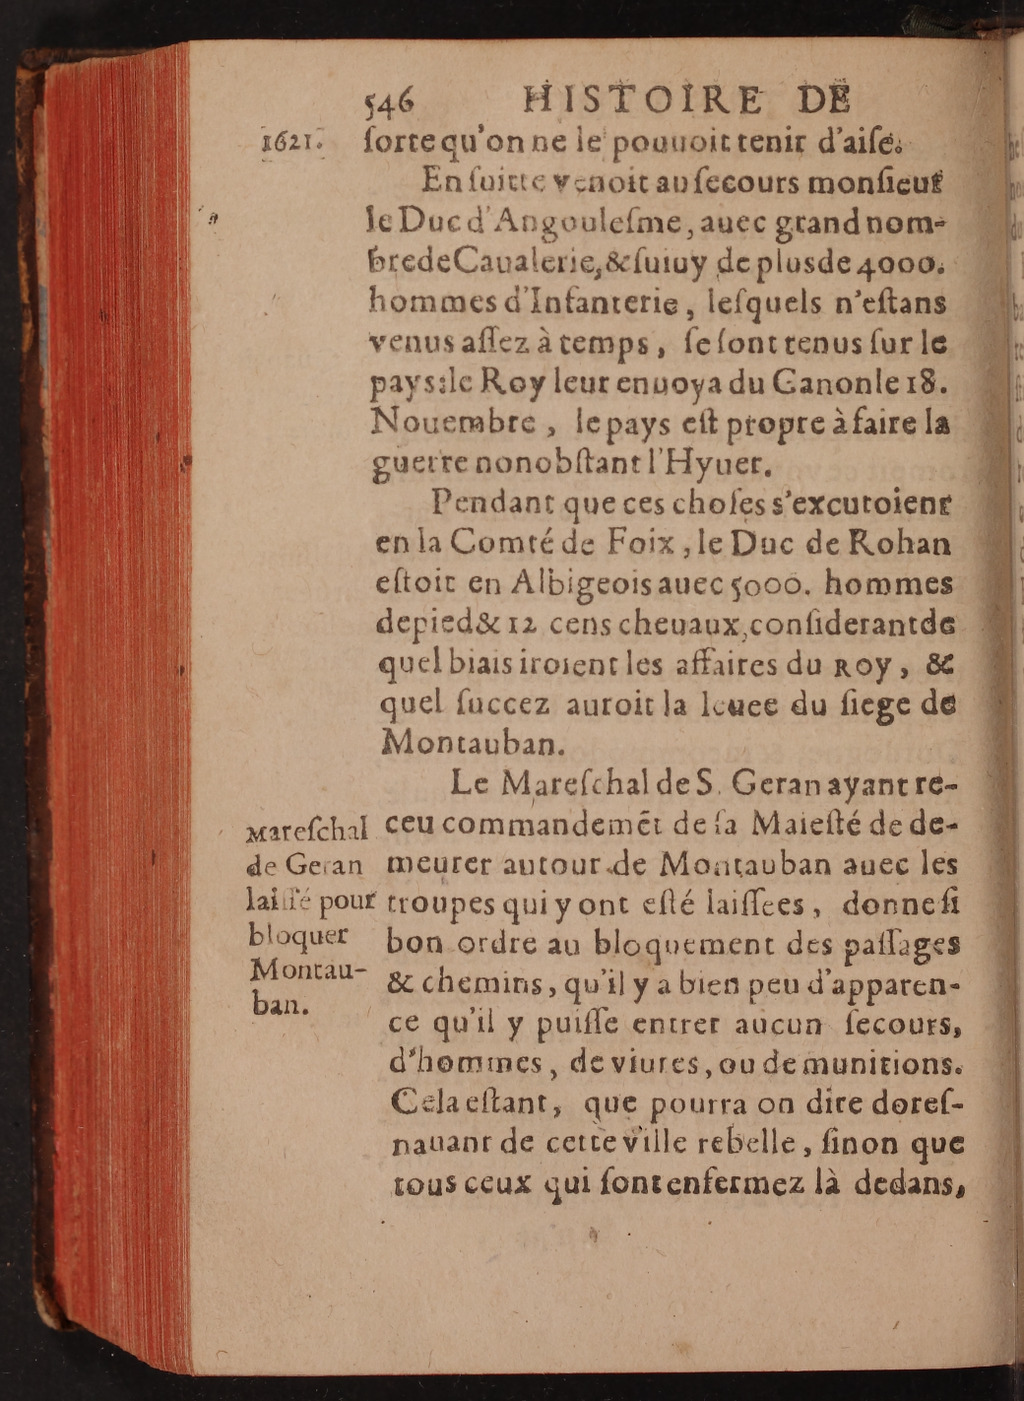 546 HISTOIRE DE
1621. ſorte qu'on ne le pouuoit tenir d'aiſe.
En ſuitte venoit au ſecours monſieur
le Duc d'Angouleſme, auec grand nom-
bre de Caualerie, & ſuiuy de plus de 4000.
hommes d'Infanterie, leſquels n'eſtans
venus aſſez à temps, ſe ſont tenus ſur le
pays: le Roy leur enuoya du Canon le 18.
Nouembre, le pays eſt propre à faire la
guerre nonobſtant l'Hyuer.
Pendant que ces choſes s'excutoient
en la Comté de Foix, le Duc de Rohan
eſtoit en Albigeois auec 5000. hommes
de pied & 12 cens cheuaux, conſiderant de
quel biais iroient les affaires du Roy, &
quel ſuccez auroit la leuee du ſiege de
Montauban.
Le Mareſchal de S. Geran ayant re-
ceu commandemēt de ſa Maieſté de de-
meurer autour de Montauban auec les
troupes qui y ont eſté laiſſees, donne ſi
bon ordre au bloquement des paſſages
& chemins, qu'il y a bien peu d'apparen-
ce qu'il y puiſſe entrer aucun ſecours,
d'hommes, de viures, ou de munitions.
Cela eſtant, que pourra on dire doreſ-
nauant de cette ville rebelle, ſinon que
tous ceux qui ſont enfermez là dedans,
Mareſchal
de Geran
laiſſé pour
bloquer
Montau-
ban.